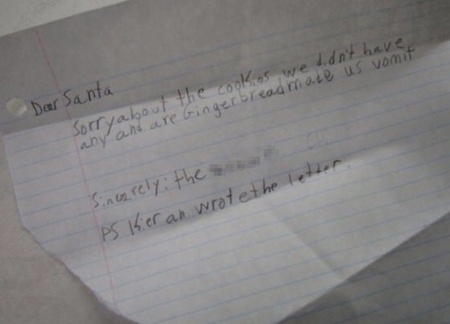 Dear Santa
Sorry about the cookios we didn't have
any and are Gingerbread made us vomit
Sincerely: the
PS Kieran wrote the letter.